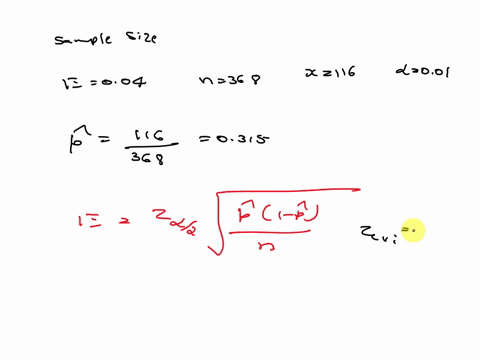 sample size
E = 0.04 n = 368 x = 116 α = 0.01
p̂ = 116/368 = 0.315
E = Z_{α/2} √(p̂(1-p̂)/n) Z_{cri} =